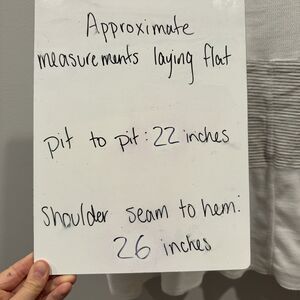 Approximate
measurements laying flat
pit to pit: 22 inches
shoulder seam to hem:
26 inches